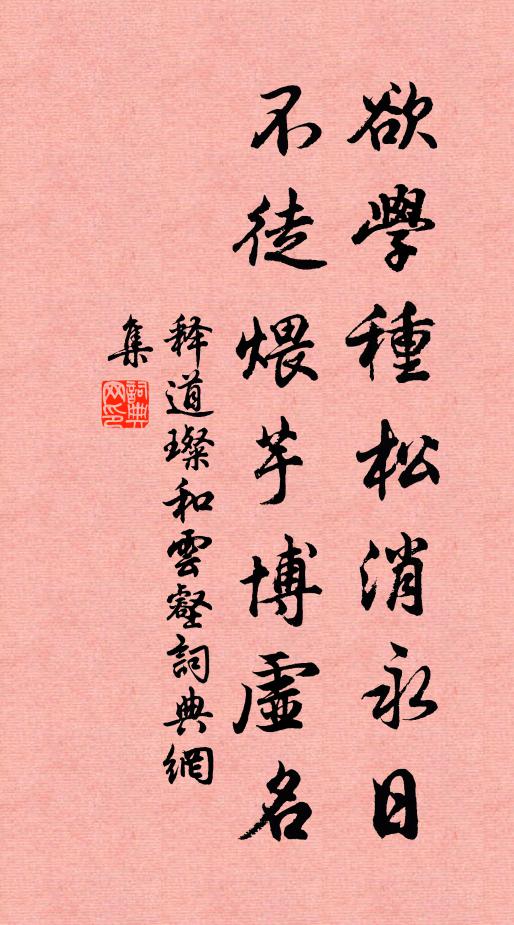 欲學種松消永日
不徒煨芋博虛名
释道璨和雲壑詞典網
集
詞典
网印